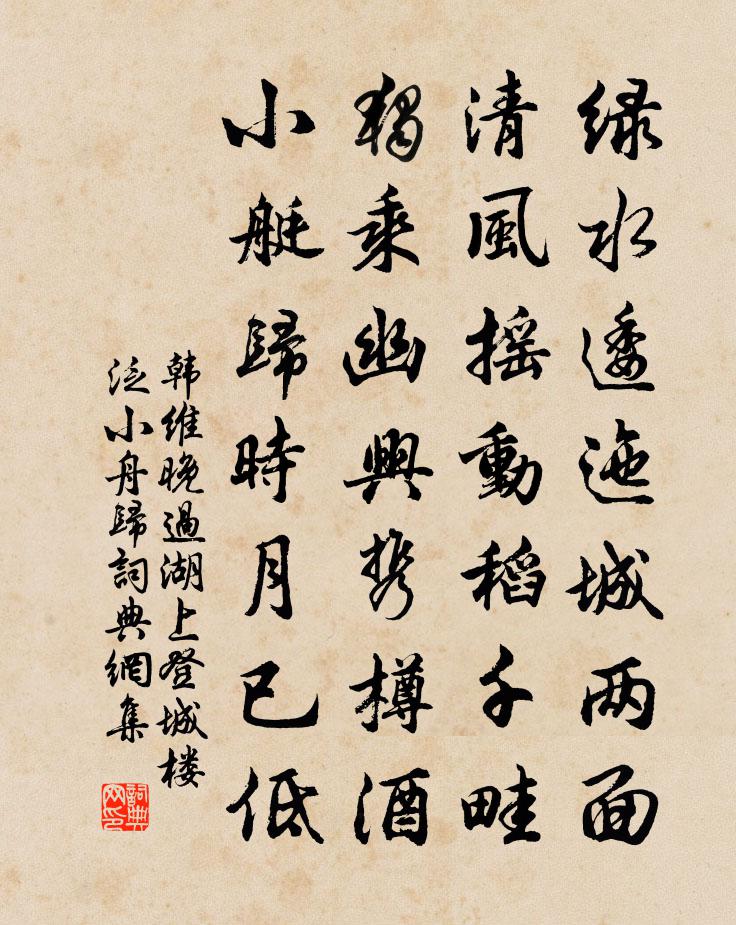 绿水逶迤城两面
清風摇動稻千畦
獨乘幽興携樽酒
小艇歸時月已低
韩维晚過湖上登城楼
泛小舟歸詞典網集
詞典
网印